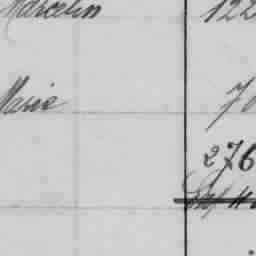 Marcelin 122
Marie 70
276